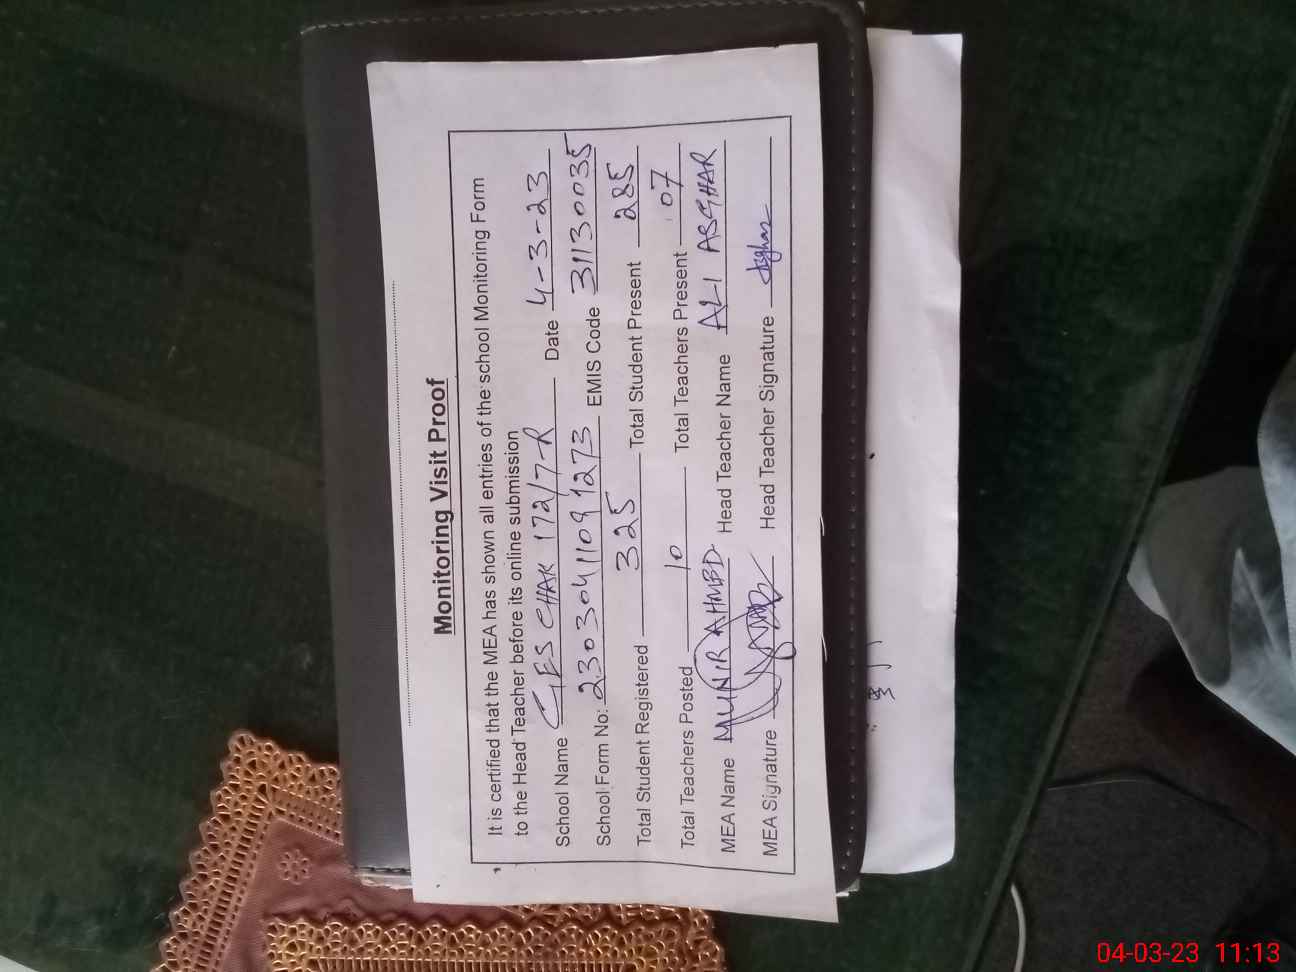 Monitoring Visit Proof
It is certified that the MEA has shown all entries of the school Monitoring Form
to the Head Teacher before its online submission
School Name GES CHAK 172/7-R Date 4-3-23
School Form No: 23030411091273 EMIS Code 31130035
Total Student Registered 325 Total Student Present 285
Total Teachers Posted 10 Total Teachers Present 07
MEA Name MUNIR AHMED Head Teacher Name ALI ASGHAR
MEA Signature Head Teacher Signature Asghar
04-03-23 11:13